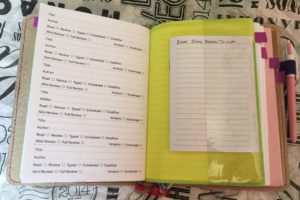 Title
Author
Read □ Review □ Typed □ Scheduled □ Deadline
Mini Review □ Full Review □ Amazon □ Goodreads □
Title
Author
Read □ Review □ Typed □ Scheduled □ Deadline
Mini Review □ Full Review □ Amazon □ Goodreads □
Title
Author
Read □ Review □ Typed □ Scheduled □ Deadline
Mini Review □ Full Review □ Amazon □ Goodreads □
Title
Author
Read □ Review □ Typed □ Scheduled □ Deadline
Mini Review □ Full Review □ Amazon □ Goodreads □
Title
Author
Read □ Review □ Typed □ Scheduled □ Deadline
Mini Review □ Full Review □ Amazon □ Goodreads □
Title
Author
Read □ Review □ Typed □ Scheduled □ Deadline
Mini Review □ Full Review □ Amazon □ Goodreads □
Book Blog
2014